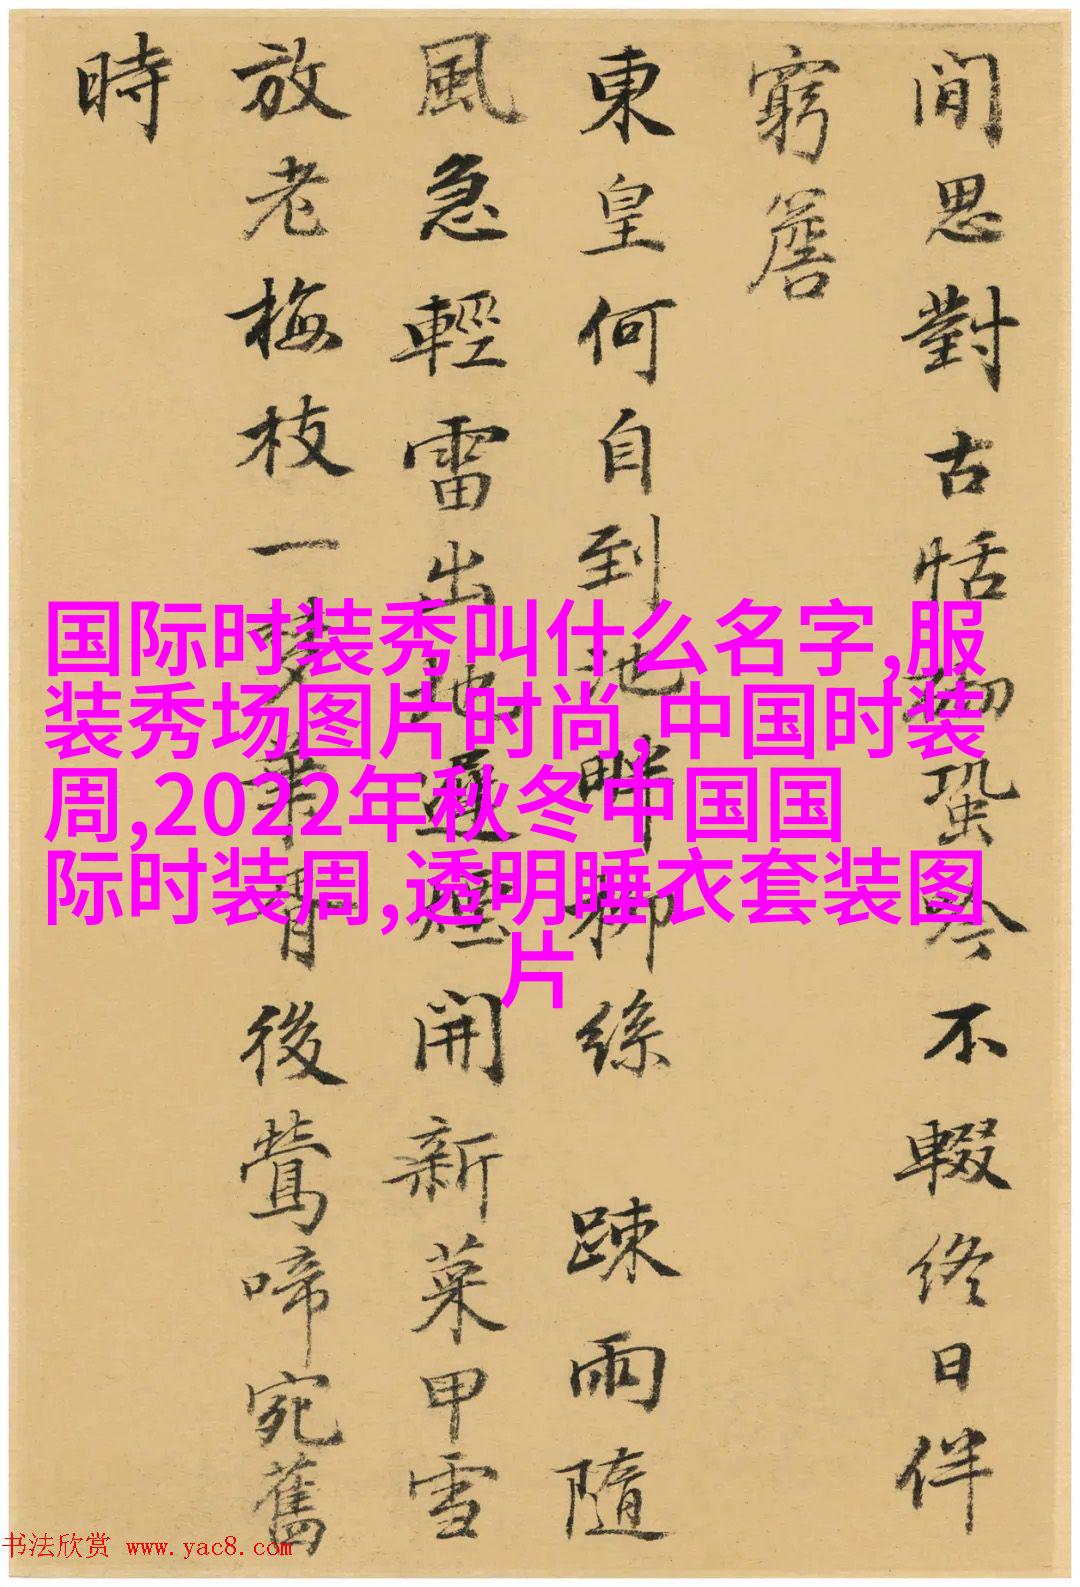 間思對古恬
蛩吟不輟終日伴
窮簷
東皇何自到池畔柳絲
踈雨隨
風急輕雷出地遲煙開新菜甲雪
放老梅枝一夢華胥後鶯啼宛舊
時
国际时装秀叫什么名字,服
装秀场图片时尚,中国时装
周,2022年秋冬中国国
际时装周,透明睡衣套装图
片
书法欣赏 www.yac8.com